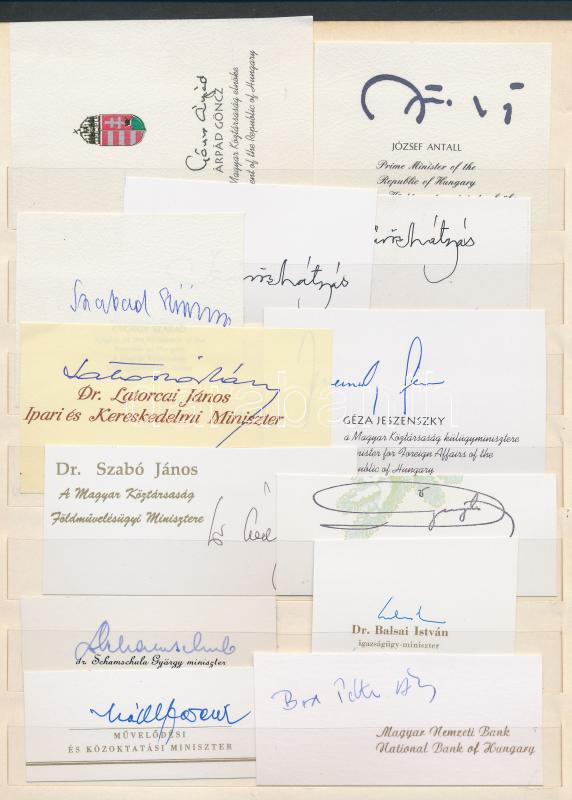 Göncz Árpád
ÁRPÁD GÖNCZ
Magyar Köztársaság elnöke
ent of the Republic of Hungary
JÓZSEF ANTALL
Prime Minister of the
Republic of Hungary
Szabad György
Dr. Latorcai János
Ipari és Kereskedelmi Miniszter
GÉZA JESZENSZKY
a Magyar Köztársaság külügyminisztere
nister for Foreign Affairs of the
public of Hungary
Dr. Szabó János
A Magyar Köztársaság
Földművelésügyi Minisztere
Dr. Balsai István
igazságügy-miniszter
dr. Schamschula György miniszter
MŰVELŐDÉSI
ÉS KÖZOKTATÁSI MINISZTER
Bod Péter Ákos
Magyar Nemzeti Bank
National Bank of Hungary